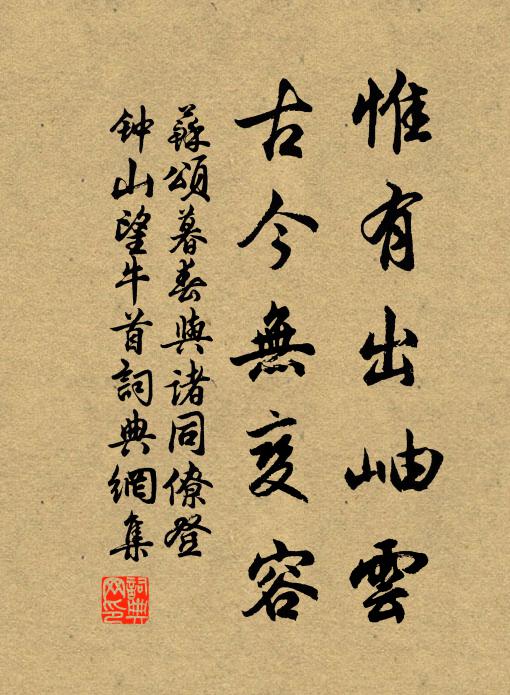 惟有出岫雲
古今無变容
蘇頌暮春與诸同僚登
钟山望牛首詞典網集
詞典网印